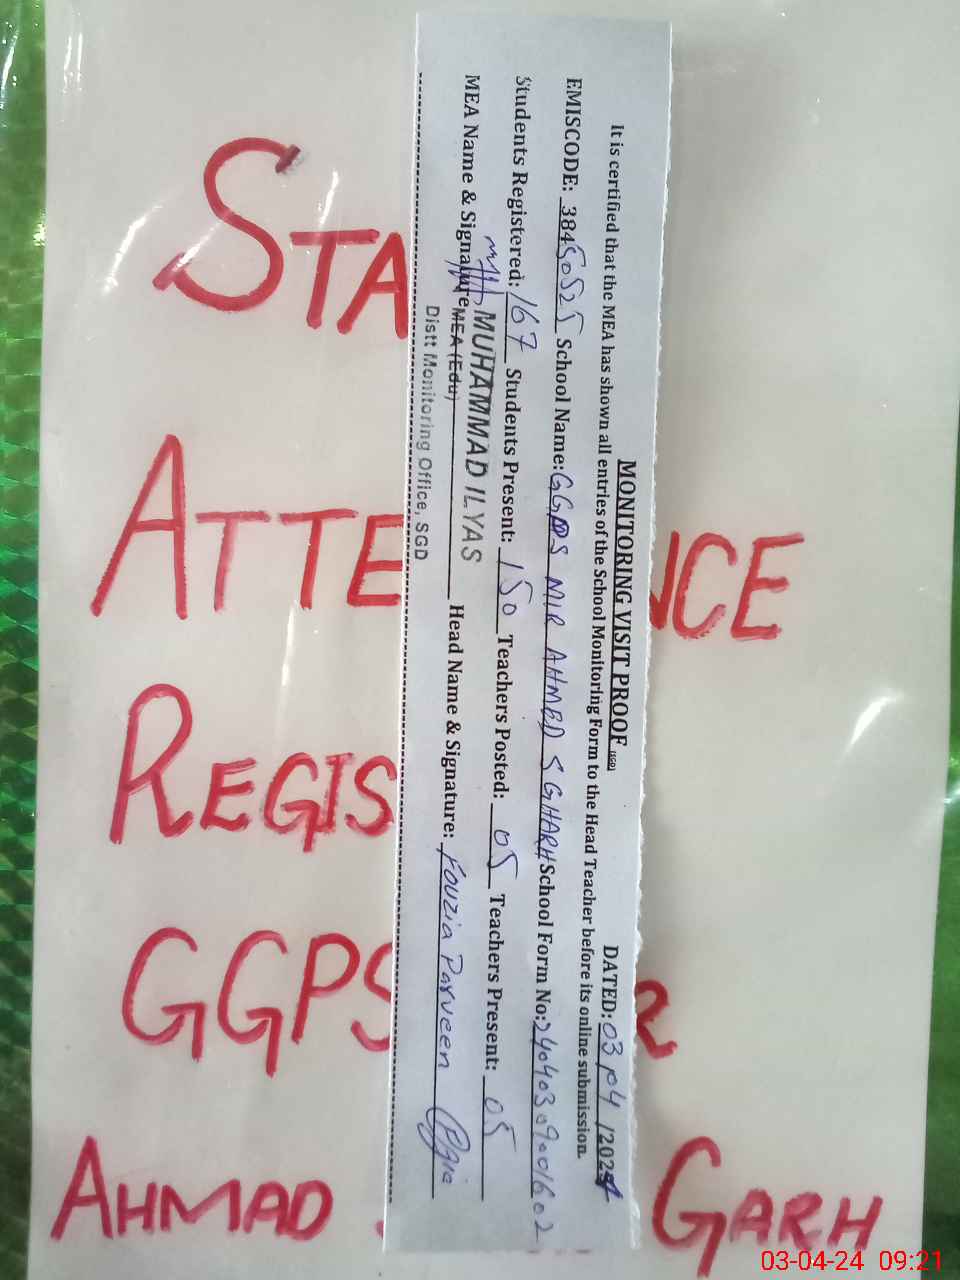 STA
ATTE NCE
REGIS
GGPS
AHMAD GARH
MONITORING VISIT PROOF (SGD) DATED: 03/04/2024
It is certified that the MEA has shown all entries of the School Monitoring Form to the Head Teacher before its online submission.
EMISCODE: 38450525 School Name: GGPS MIR AHMED SGHARH School Form No: 24040309001602
Students Registered: 167 Students Present: 150 Teachers Posted: 05 Teachers Present: 05
MEA Name & Signature MUHAMMAD ILYAS Head Name & Signature: Fouzia Parveen
MEA (Edu)
Distt Monitoring Office, SGD
03-04-24 09:21